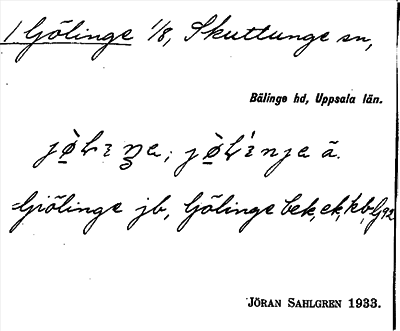 1 Gölinge 1/8, Skuttunge sn,
Bälinge hd, Uppsala län.
ä.
=Giölinge jb, Gölinge bek, ek, kb, G92
JÖRAN SAHLGREN 1933.